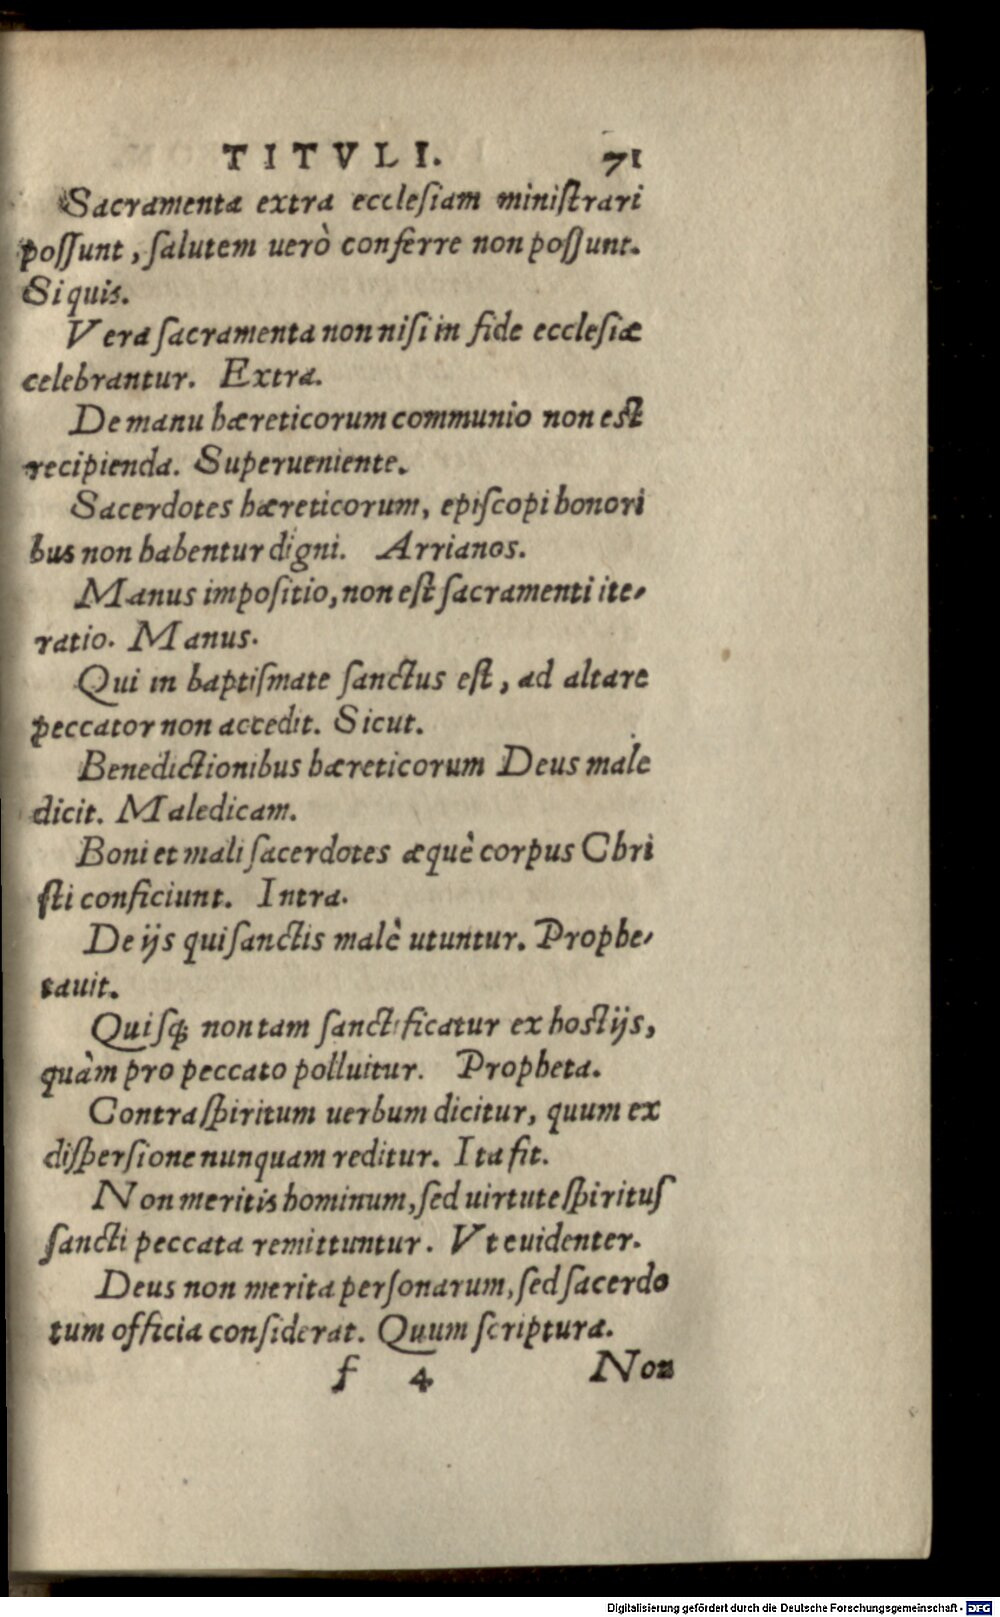 TITVLI. 71
Sacramenta extra ecclesiam ministrari
possunt, salutem uerò conferre non possunt.
Si quis.
Vera sacramenta non nisi in fide ecclesiæ
celebrantur. Extra.
De manu hæreticorum communio non est
recipienda. Superueniente.
Sacerdotes hæreticorum, episcopi honori
bus non habentur digni. Arrianos.
Manus impositio, non est sacramenti ite-
ratio. Manus.
Qui in baptismate sanctus est, ad altare
peccator non accedit. Sicut.
Benedictionibus hæreticorum Deus male
dicit. Maledicam.
Boni et mali sacerdotes æquè corpus Chri
sti conficiunt. Intra.
De ijs qui sanctis malè utuntur. Prophe-
tauit.
Quisq; non tam sanctificatur ex hostijs,
quàm pro peccato polluitur. Propheta.
Contra spiritum uerbum dicitur, quum ex
dispersione nunquam reditur. Ita fit.
Non meritis hominum, sed uirtute spiritus
sancti peccata remittuntur. Vt euidenter.
Deus non merita personarum, sed sacerdo
tum officia considerat. Quum scriptura.
f 4 Non
Digitalisierung gefördert durch die Deutsche Forschungsgemeinschaft - DFG